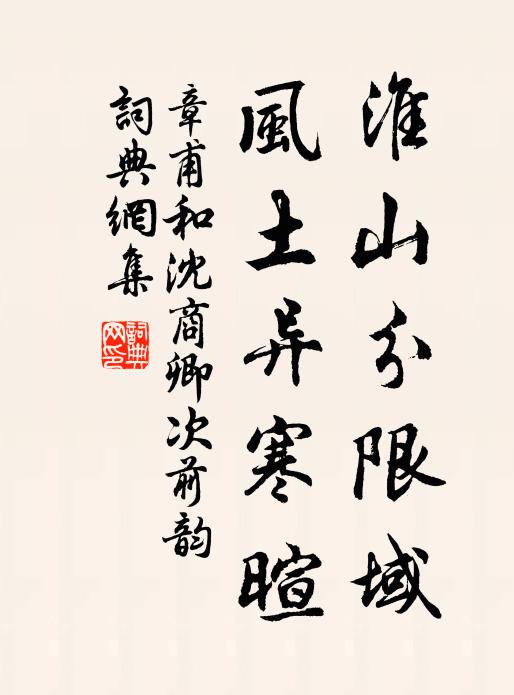 淮山分限域
風土异寒暄
章甫和沈商卿次前韵
詞典網集
詞典网印